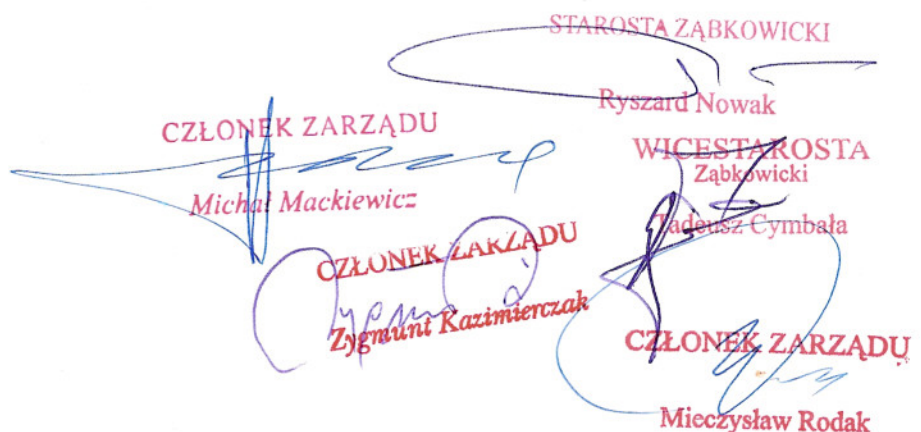 STAROSTA ZĄBKOWICKI
Ryszard Nowak
CZŁONEK ZARZĄDU
Michał Mackiewicz
WICESTAROSTA
Ząbkowicki
Tadeusz Cymbała
CZŁONEK ZARZĄDU
Zygmunt Kazimierczak
CZŁONEK ZARZĄDU
Mieczysław Rodak